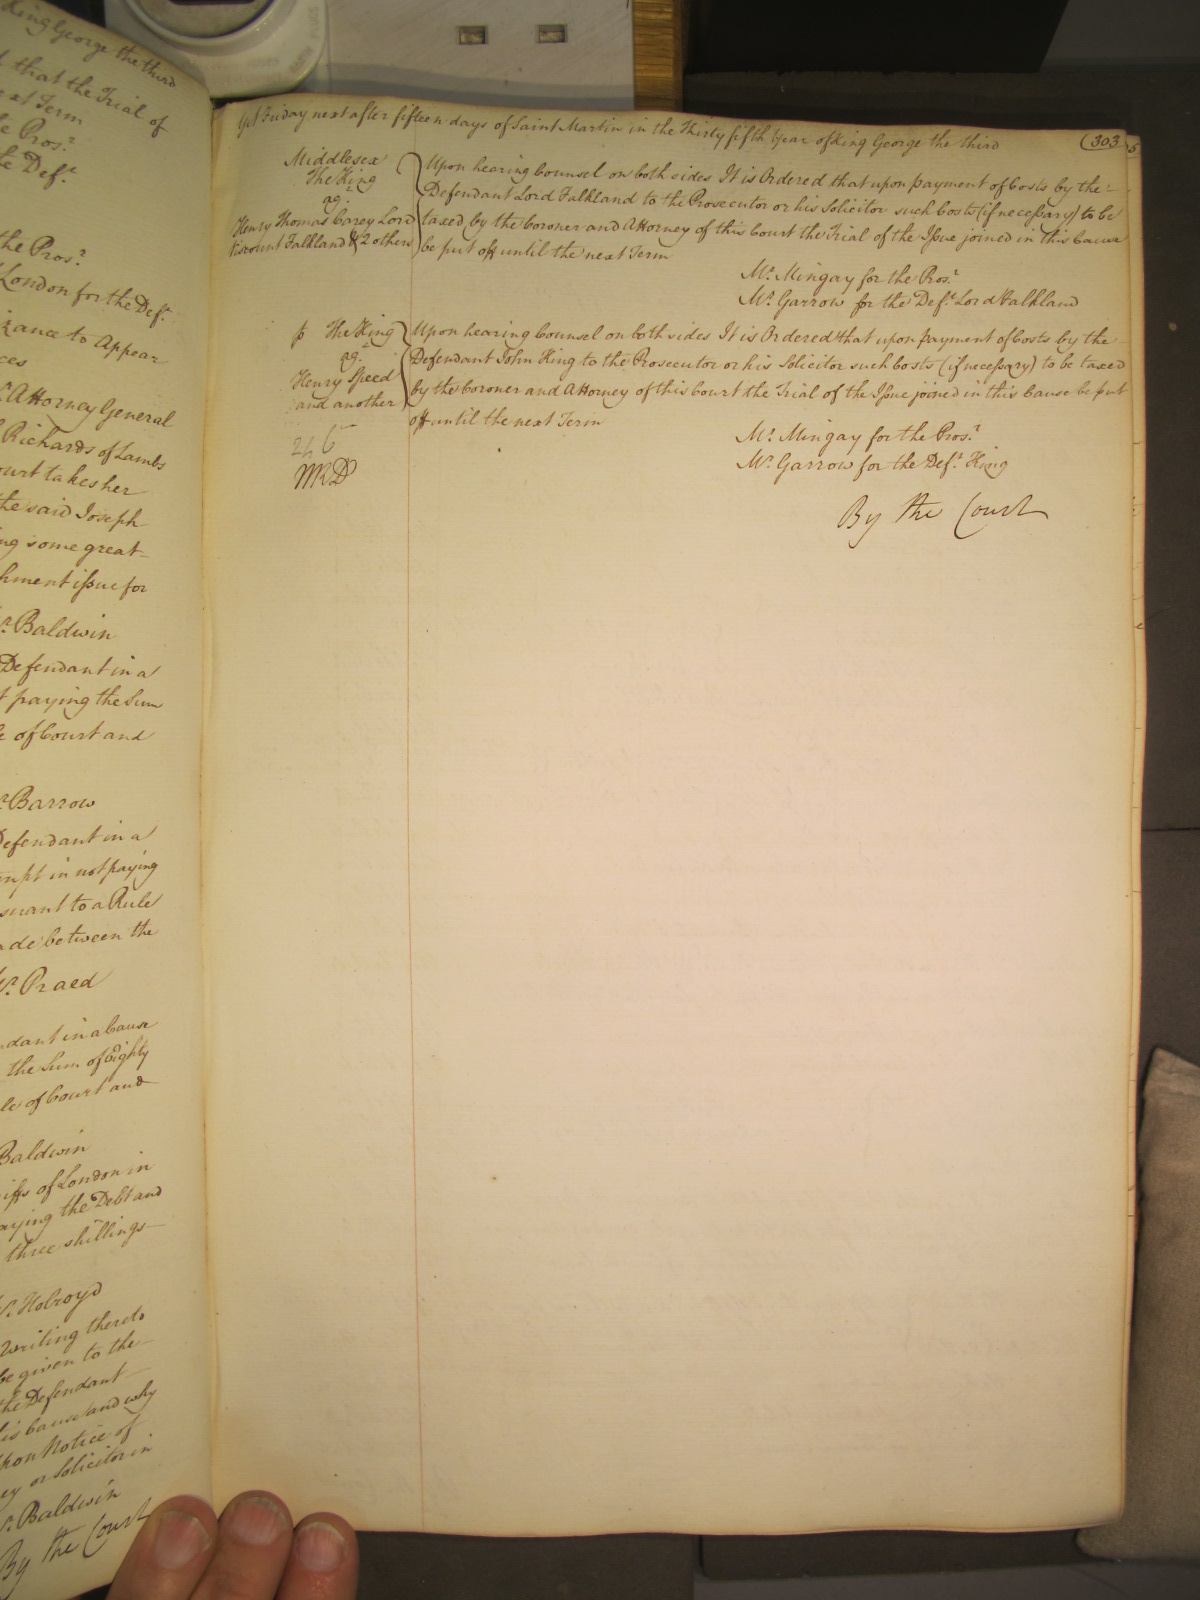 King George the third
that the Trial of
next Term
Pros.r
Def.t
the Pros.r
London for the Def.t
to Appear
Attorney General
Richards of Lambs
Court takes her
the said Joseph
some great
issue for
Baldwin
Defendant in a
paying the Sum
of Court and
Barrow
Defendant in a
in not paying
to a Rule
between the
Praed
in a Cause
the Sum of Eighty
of Court and
Baldwin
of London in
paying the Debt and
three shillings
Holroyd
writing thereto
be given to the
the Defendant
Cause and why
upon Notice of
or Solicitor in
Baldwin
By the Court
Yet Friday next after fifteen days of Saint Martin in the Thirty fifth Year of King George the third
303
Middlesex
The King
ag.t
Henry Thomas Carey Lord
Viscount Falkland & 2 others
Upon hearing Counsel on both sides It is Ordered that upon payment of Costs by the
Defendant Lord Falkland to the Prosecutor or his Solicitor such Costs (if necessary) to be
taxed by the Coroner and Attorney of this Court the Trial of the Issue joined in this Cause
be put off until the next Term
Mr. Mingay for the Pros.r
Mr. Garrow for the Def.t Lord Falkland
The King
ag.t
Henry Speed
and another
Upon hearing Counsel on both sides It is Ordered that upon payment of Costs by the
Defendant John King to the Prosecutor or his Solicitor such Costs (if necessary) to be taxed
by the Coroner and Attorney of this Court the Trial of the Issue joined in this Cause be put
off until the next Term
Mr. Mingay for the Pros.r
Mr. Garrow for the Def.t King
By the Court